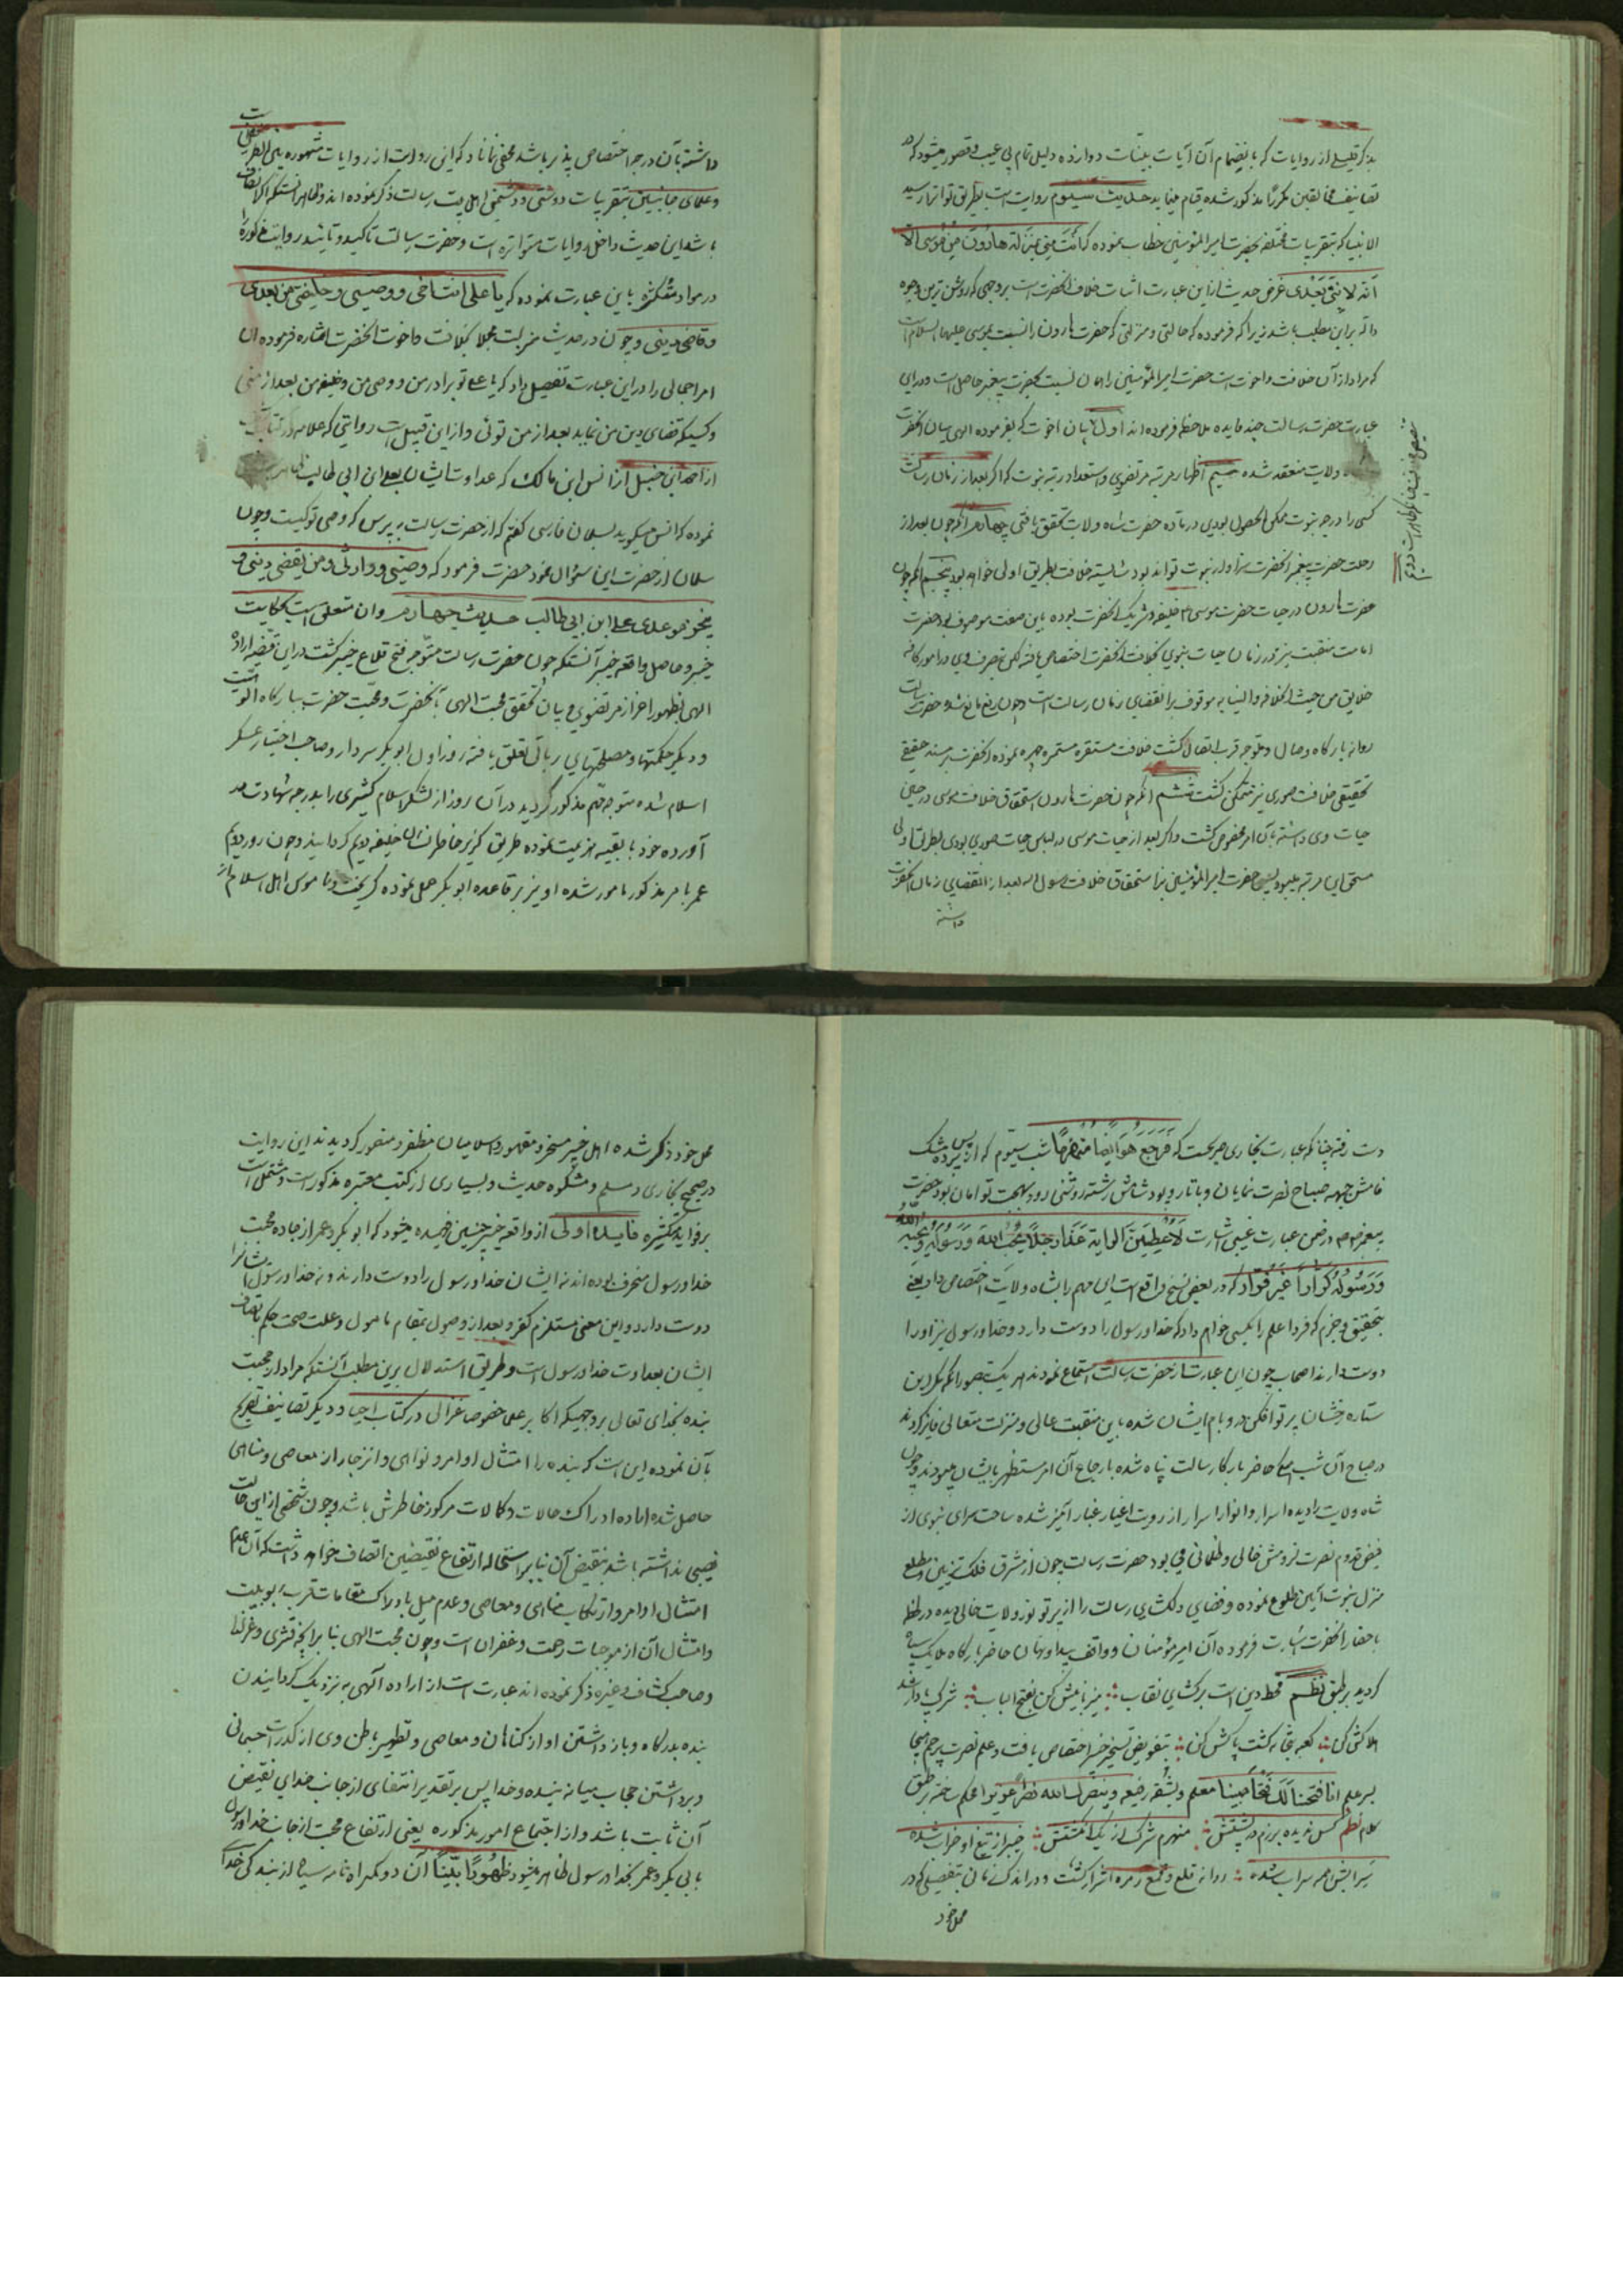 بذکر قلیلی از روایات که بانضمام آن آیات بینات دوازده دلیل تمام بی عیب و قصور میشود که در
تصانیف مخالفین مکررا مذکور شده قیام مینماید حدیث سیوم روایت است بطریق تواتر از سید
الانبیا که بتقریبات مختلفه بحضرت امیرالمؤمنین خطاب نموده که انت منی بمنزلة هارون من موسی الا
انه لا نبی بعدی غرض حدیث از این عبارت اثبات خلافت آنحضرت است بروجهی که روشن ترین وجوه
داله براین مطلب باشد زیرا که فرموده که حالتی و منزلتی که حضرت هارون را نسبت بموسی علیهما السلام است
که مراد از آن خلافت و اخوت است حضرت امیرالمؤمنین را همان نسبت بحضرت پیغمبر حاصل است و در این
عبارت حضرت رسالت چند فایده ملاحظه فرموده اند اول بیان اخوت که بفرموده الهی میان آنحضرت
ولایت منعقد شده سیم اظهار مرتبه مرتضوی و استعداد رتبه نبوت که اگر بعد از زمان رسالت
کسی را درجه نبوت ممکن الحصول بودی در ماده حضرت شاه ولایت تحقق یافتی چهارم آنکه چون بعد از
رحلت حضرت پیغمبر آنحضرت سزاوار نبوت تواند بود شایسته خلافت بطریق اولی خواهد بود پنجم آنکه چون
حضرت هارون در حیات حضرت موسی خلیفه و شریک آنحضرت بوده باین صفت موصوف بود حضرت
امامت منقبت نیز در زمان حیات نبوی بخلافت آنحضرت اختصاص یافته لکن تصرف وی در امور کافه
خلایق من حیث الخلافه والنیابه موقوف بر انقضای زمان رسالت است و چون رفع مانع شد و حضرت رسالت
روانه بارگاه وصال و متوجه قرب اتصال گشت خلافت مستقره مستمره چهره نموده آنحضرت بر مسند حقیقی
تحقیقی خلافت صوری نیز متمکن گشت ششم آنکه چون حضرت هارون استحقاق خلافت موسی در حین
حیات وی داشته بآن امر مخصوص گشت و اگر بعد از حیات موسی در لباس حیات صوری بودی بطریق اولی
مستحق این مرتبه میبود پس حضرت امیرالمؤمنین نیز استحقاق خلافت رسول الله بعد از انقضای زمان آنحضرت
داشته
داشته بآن درجه اختصاص پذیر باشد مخفی نماناد که این روایت از روایات مشهوره بین الفریقین است
وعلمای جانبین بتقریبات دوستی و دشمنی اهل بیت رسالت ذکر نموده اند و ظاهر آنستکه اگر انصاف
باشد این حدیث داخل روایات متواتره است و حضرت رسالت تاکید و تائید روایت مذکوره را
در مواد متکثره باین عبارت نموده که یا علی انت اخی ووصیی وخلیفتی من بعدی
وقاضی دینی و چون در حدیث منزلت مجملا بخلافت و اخوت آنحضرت اشاره فرموده آن
امر اجمالی را در این عبارت تفصیل داد که یا علی تو برادر من و وصی من و خلیفه من بعد از منی
و کسیکه قضای دین من نماید بعد از من توئی و از این قبیل است روایتی که علامه در کتاب کشف
از احمد ابن حنبل از انس ابن مالک که عداوت ایشان بعلی ابن ابی طالب ظاهر است
نموده که انس میگوید بسلمان فارسی گفتم که از حضرت رسالت بپرس که وصی تو کیست و چون
سلمان از حضرت این سؤال نمود حضرت فرمود که وصیی ووارثی ومن یقضی دینی و
ینجز موعدی علی ابن ابی طالب حدیث چهارم و آن متعلق است بحکایت
خیبر و حاصل واقعه خیبر آنستکه چون حضرت رسالت متوجه فتح قلاع خیبر گشت در این قضیه اراده
الهی بظهور اعزاز مرتضوی و بیان تحقق محبت الهی بآنحضرت و محبت حضرت ببارگاه الوهیت
و دیگر حکمتها و مصلحتهای ربانی تعلق یافته روز اول ابو بکر سردار و صاحب اختیار عسکر
اسلام شده متوجه مهم مذکور گردید در آن روز از لشکر اسلام کثیری را بدرجه شهادت در
آورده خود با بقیه هزیمت نموده طریق گریز خاطرنشان خلیفه دویم گردانید و چون روز دویم
عمر بامر مذکور مامور شده او نیز بر قاعده ابو بکر عمل نموده گریخت و ناموس اهل اسلام از
دست رفته چنانکه عبارت بخاری صریحست که فرجع هو ایضا منهزما شب سیوم که از پس پرده مشک
فامش جبهه صباح نصرت نمایان و با تار و پود شامش رشته روشنی روز بهجت توامان بود حضرت
پیغمبر در ضمن عبارت غیبی اشارت لاعطین الرایة غدا رجلا یحب الله ورسوله ویحبه الله
ورسوله کرارا غیر فرار که در بعضی نسخ واقع است این مهم را بشاه ولایت اختصاص داد یعنی
بتحقیق و جزم که فردا علم را بکسی خواهم داد که خدا و رسول را دوست دارد و خدا و رسول نیز او را
دوست دارند اصحاب چون این عبارت از حضرت رسالت استماع نمودند هر یک بتصور آنکه مگر این
ستاره رخشان پرتو افکن در و بام ایشان شده باین منقبت عالی و منزلت متعالی فایز گردند
در صباح آن شب همگی حاضر بارگاه رسالت پناه شده بارجاع آن امر مستظهر بایشان میبودند و چون
شاه ولایت را دیده اسرار و انوار ابرار از رویت اغیار غبار آمیز شده ساحت سرای نبوی از
فیض قدوم نصرت لزومش خالی و ظلمانی می بود حضرت رسالت چون از مشرق فلک تزیین و مطلع
منزل نبوت آیین طلوع نموده و فضای دلگشای رسالت را از پرتو نور ولایت خالی دیده در لحظه
باحضار آنحضرت اشارت فرموده آن امیر مؤمنان و واقف پیدا و نهان حاضر بارگاه ملایک سپاه
گردید بر طبق نظم قحط دین است برگشای نقاب میزبانیش کن بفتح الباب شرک بادار شد
هلاکش کن کعبه بتخانه گشت پاکش کن بتفویض تسخیر خیبر اختصاص یافت و علم نصرت پرچم
بسر علم انا فتحنا لک فتحا مبینا معلم و بشقه رفیعه وینصرک الله نصرا عزیزا محکم ساخته بر طبق
کلام نظم کس ندیده برزم در پشتش منهزم شرک از یک انگشتش خیبر از تیغ او خراب شده
سرابش همه سراب شده روانه قلع و قمع زمره اشرار گشت و در اندک زمانی بتفصیلی که در
محل خود
محل خود ذکر شده اهل خیبر مسخر و مقهور و اسلامیان مظفر و منصور گردیدند این روایت
در صحیح بخاری و مسلم و مشکوه حدیث و بسیاری از کتب معتبره مذکور است و مشتمل است
بر فواید متکثره فایده اولی از واقعه خیبر چنین فهمیده میشود که ابو بکر و عمر از جاده محبت
خدا و رسول منحرف بوده اند نه ایشان خدا و رسول را دوست دارند و نه خدا و رسول ایشانرا
دوست دارد و این معنی مستلزم کفر و بعد از وصول بمقام مامول و علت صحت حکم باتصاف
ایشان بعداوت خدا و رسول است و طریق استدلال برین مطلب آنستکه مراد از محبت
بنده بخدای تعالی بر وجهیکه اکابر علما خصوصا غزالی در کتاب احیا و دیگر تصانیف تصریح
بآن نموده این است که بنده را امتثال اوامر و نواهی و انزجار از معاصی و مناهی
حاصل شده اراده ادراک حالات و کمالات مرکوز خاطرش باشد و چون شخصی از این حالت
نصیبی نداشته باشد بنقیض آن بنابر استحاله ارتفاع نقیضین اتصاف خواهد داشت که آن عدم
امتثال اوامر و ارتکاب مناهی و معاصی و عدم میل بادراک مقامات قرب ربوبیت
و امتثال آن از موجبات رحمت و غفران است و چون محبت الهی بنا برآنچه قشری و غزالی
و صاحب کشاف و غیره ذکر نموده اند عبارت است از اراده الهی به نزدیک گردانیدن
بنده بدرگاه و باز داشتن او از گناهان و معاصی و تطهیر باطن وی از کدورات جسمانی
و برداشتن حجاب میانه بنده و خدا پس بر تقدیر انتفای از جانب خدای نقیض
آن ثابت باشد و از اجتماع امور مذکوره یعنی ارتفاع محبت از جانب خدا و رسول
بابی بکر و عمر بخدا و رسول ظاهر میشود ظهورا بینا آن دو گمراه نامه سیاه از بندگی خدا